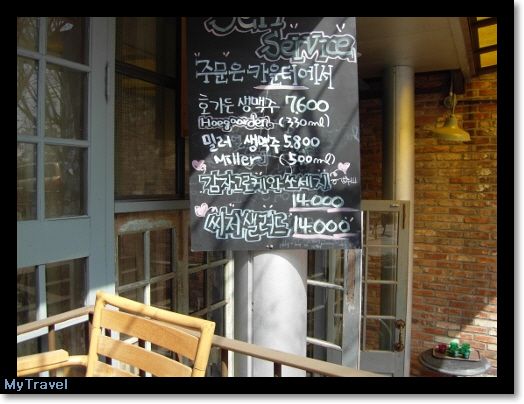 Self
Service
주문은 카운터에서
호가든 생맥주 7600
Hoegaarden (330ml)
밀러 생맥주 5.800
Miller (500ml)
감자고로케와 쏘세지
14.000
씨저샐러드 14.000
MyTravel